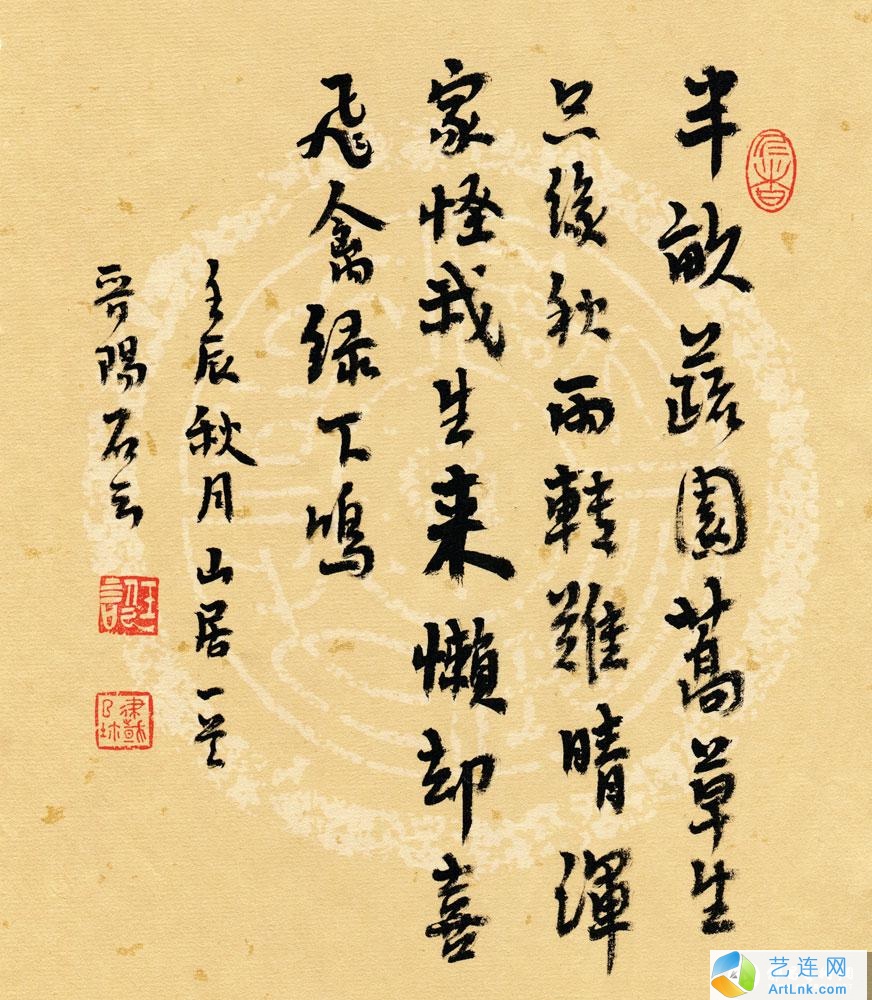 半畝蔬園蒿草生
只緣秋雨轉難晴渾
家怪我生来懶却喜
飛禽緑下鳴
壬辰秋月山居一
晉陽石云
艺连网
ArtLnk.com